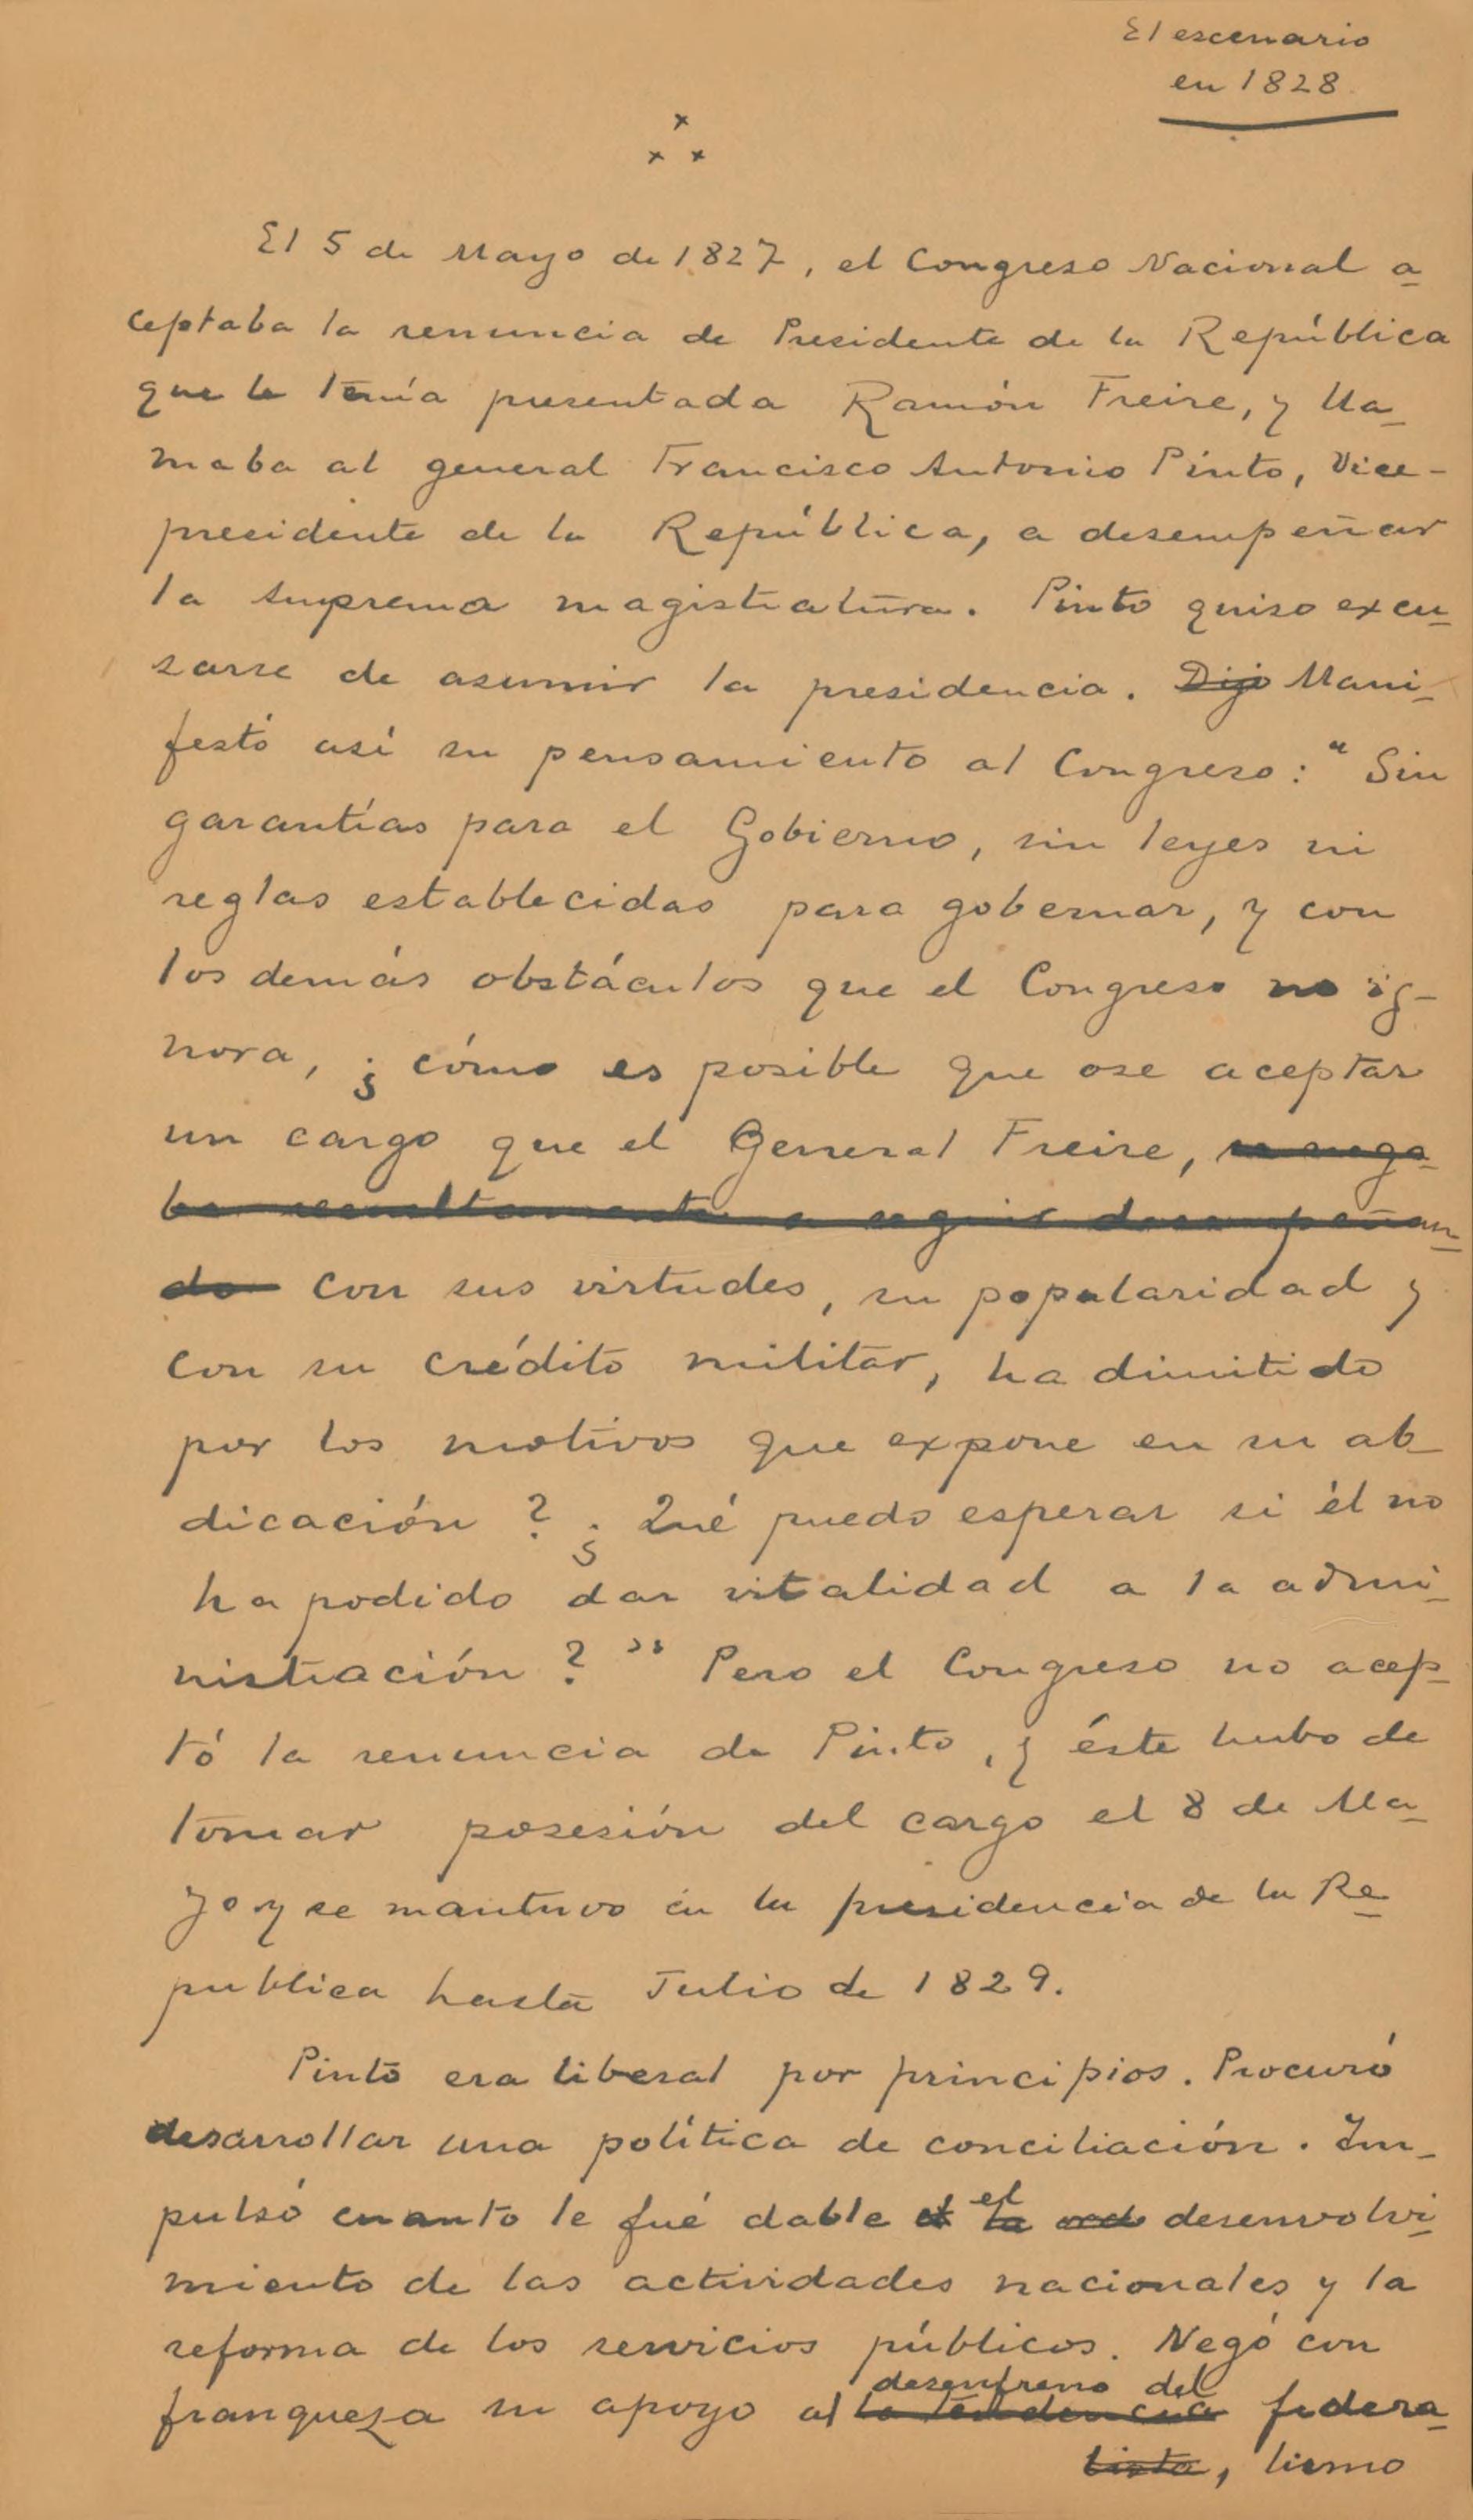 El escenario
en 1828.
x
x x
El 5 de Mayo de 1827, el Congreso Nacional a
ceptaba la renuncia de Presidente de la República
que le tenía presentada Ramón Freire, y lla_
maba al general Francisco Antonio Pinto, Vice-
presidente de la República, a desempeñar
la suprema magistratura. Pinto quiso excu_
sarse de asumir la presidencia. Dijo Mani_
festó así su pensamiento al Congreso: "Sin
garantías para el Gobierno, sin leyes ni
reglas establecidas para gobernar, y con
los demás obstáculos que el Congreso no ig-
nora, ¿cómo es posible que ose aceptar
un cargo que el General Freire, se nega
ba resueltamente a seguir desempeñan_
do con sus virtudes, su popularidad y
con su crédito militar, ha dimitido
por los motivos que expone en su ab_
dicación? ¿Qué puedo esperar si él no
ha podido dar vitalidad a la admi_
nistración?" Pero el Congreso no acep_
tó la renuncia de Pinto, y éste hubo de
tomar posesión del cargo el 8 de Ma_
yo y se mantuvo en la presidencia de la Re_
publica hasta Julio de 1829.
Pinto era liberal por principios. Procuró
desarrollar una política de conciliación. Im_
pulsó cuanto le fué dable el la el desenvolvi_
miento de las actividades nacionales y la
reforma de los servicios públicos. Negó con
franqueza su apoyo al la tendencia desenfreno del federa_
lista, lismo